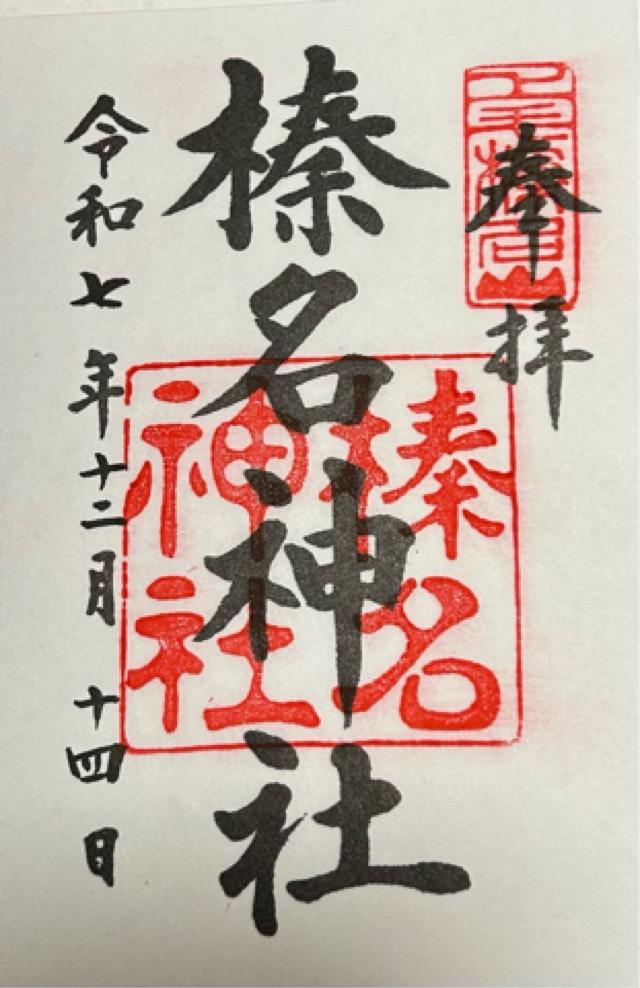 奉拝
上毛榛名山
榛名神社
榛名
神社
令和七年十二月十四日